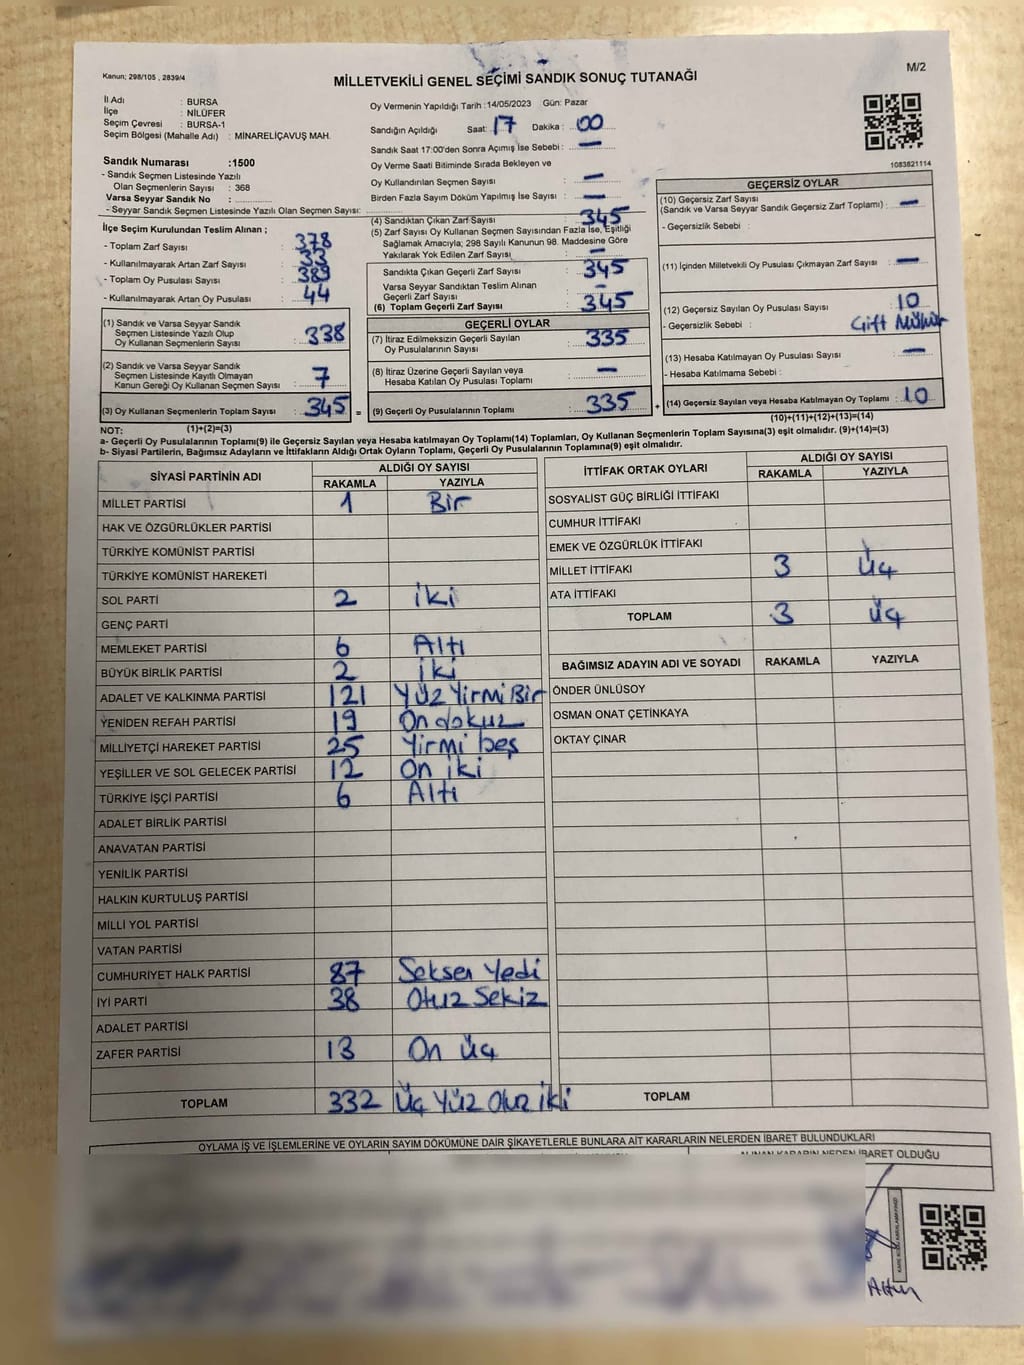 Kanun; 298/105 , 2839/4
MİLLETVEKİLİ GENEL SEÇİMİ SANDIK SONUÇ TUTANAĞI
M/2
İl Adı : BURSA
İlçe : NİLÜFER
Seçim Çevresi : BURSA-1
Seçim Bölgesi (Mahalle Adı) : MİNARELİÇAVUŞ MAH.
Sandık Numarası :1500
- Sandık Seçmen Listesinde Yazılı
Olan Seçmenlerin Sayısı : 368
Varsa Seyyar Sandık No :
- Seyyar Sandık Seçmen Listesinde Yazılı Olan Seçmen Sayısı:
İlçe Seçim Kurulundan Teslim Alınan ;
- Toplam Zarf Sayısı : 378
- Kullanılmayarak Artan Zarf Sayısı : 33
- Toplam Oy Pusulası Sayısı : 389
- Kullanılmayarak Artan Oy Pusulası : 44
(1) Sandık ve Varsa Seyyar Sandık
Seçmen Listesinde Yazılı Olup
Oy Kullanan Seçmenlerin Sayısı : 338
(2) Sandık ve Varsa Seyyar Sandık
Seçmen Listesinde Kayıtlı Olmayan
Kanun Gereği Oy Kullanan Seçmen Sayısı : 7
(3) Oy Kullanan Seçmenlerin Toplam Sayısı : 345 =
(1)+(2)=(3)
Oy Vermenin Yapıldığı Tarih :14/05/2023 Gün: Pazar
Sandığın Açıldığı Saat: 17 Dakika : 00
Sandık Saat 17:00'den Sonra Açımış İse Sebebi : —
Oy Verme Saati Bitiminde Sırada Bekleyen ve
Oy Kullandırılan Seçmen Sayısı : —
Birden Fazla Sayım Döküm Yapılmış İse Sayısı : —
(4) Sandıktan Çıkan Zarf Sayısı : 345
(5) Zarf Sayısı Oy Kullanan Seçmen Sayısından Fazla İse, Eşitliği
Sağlamak Amacıyla; 298 Sayılı Kanunun 98. Maddesine Göre
Yakılarak Yok Edilen Zarf Sayısı : —
Sandıkta Çıkan Geçerli Zarf Sayısı : 345
Varsa Seyyar Sandıktan Teslim Alınan
Geçerli Zarf Sayısı : —
(6) Toplam Geçerli Zarf Sayısı : 345
GEÇERLİ OYLAR
(7) İtiraz Edilmeksizin Geçerli Sayılan
Oy Pusulalarının Sayısı : 335
(8) İtiraz Üzerine Geçerli Sayılan veya
Hesaba Katılan Oy Pusulası Toplamı : —
(9) Geçerli Oy Pusulalarının Toplamı : 335 +
1083821114
GEÇERSİZ OYLAR
(10) Geçersiz Zarf Sayısı
(Sandık ve Varsa Seyyar Sandık Geçersiz Zarf Toplamı) : —
- Geçersizlik Sebebi :
(11) İçinden Milletvekili Oy Pusulası Çıkmayan Zarf Sayısı : —
(12) Geçersiz Sayılan Oy Pusulası Sayısı : 10
- Geçersizlik Sebebi : Çift Mühür
(13) Hesaba Katılmayan Oy Pusulası Sayısı : —
- Hesaba Katılmama Sebebi :
(14) Geçersiz Sayılan veya Hesaba Katılmayan Oy Toplamı : 10
(10)+(11)+(12)+(13)=(14)
NOT:
a- Geçerli Oy Pusulalarının Toplamı(9) ile Geçersiz Sayılan veya Hesaba katılmayan Oy Toplamı(14) Toplamları, Oy Kullanan Seçmenlerin Toplam Sayısına(3) eşit olmalıdır. (9)+(14)=(3)
b- Siyasi Partilerin, Bağımsız Adayların ve İttifakların Aldığı Ortak Oyların Toplamı, Geçerli Oy Pusulalarının Toplamına(9) eşit olmalıdır.
SİYASİ PARTİNİN ADI ALDIĞI OY SAYISI
RAKAMLA YAZIYLA
MİLLET PARTİSİ 1 Bir
HAK VE ÖZGÜRLÜKLER PARTİSİ
TÜRKİYE KOMÜNİST PARTİSİ
TÜRKİYE KOMÜNİST HAREKETİ
SOL PARTİ 2 iki
GENÇ PARTİ
MEMLEKET PARTİSİ 6 Altı
BÜYÜK BİRLİK PARTİSİ 2 iki
ADALET VE KALKINMA PARTİSİ 121 Yüz Yirmi Bir
YENİDEN REFAH PARTİSİ 19 On dokuz
MİLLİYETÇİ HAREKET PARTİSİ 25 Yirmi beş
YEŞİLLER VE SOL GELECEK PARTİSİ 12 On iki
TÜRKİYE İŞÇİ PARTİSİ 6 Altı
ADALET BİRLİK PARTİSİ
ANAVATAN PARTİSİ
YENİLİK PARTİSİ
HALKIN KURTULUŞ PARTİSİ
MİLLİ YOL PARTİSİ
VATAN PARTİSİ
CUMHURİYET HALK PARTİSİ 87 Seksen Yedi
İYİ PARTİ 38 Otuz Sekiz
ADALET PARTİSİ
ZAFER PARTİSİ 13 On üç
TOPLAM 332 Üç Yüz Otuz iki
İTTİFAK ORTAK OYLARI ALDIĞI OY SAYISI
RAKAMLA YAZIYLA
SOSYALİST GÜÇ BİRLİĞİ İTTİFAKI
CUMHUR İTTİFAKI
EMEK VE ÖZGÜRLÜK İTTİFAKI
MİLLET İTTİFAKI 3 Üç
ATA İTTİFAKI
TOPLAM 3 Üç
BAĞIMSIZ ADAYIN ADI VE SOYADI RAKAMLA YAZIYLA
ÖNDER ÜNLÜSOY
OSMAN ONAT ÇETİNKAYA
OKTAY ÇINAR
TOPLAM
OYLAMA İŞ VE İŞLEMLERİNE VE OYLARIN SAYIM DÖKÜMÜNE DAİR ŞİKAYETLERLE BUNLARA AİT KARARLARIN NELERDEN İBARET BULUNDUKLARI
ALINAN KARARIN NEDEN İBARET OLDUĞU